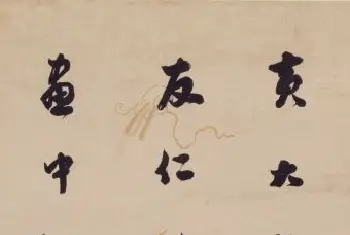 黃大
友仁
畫中